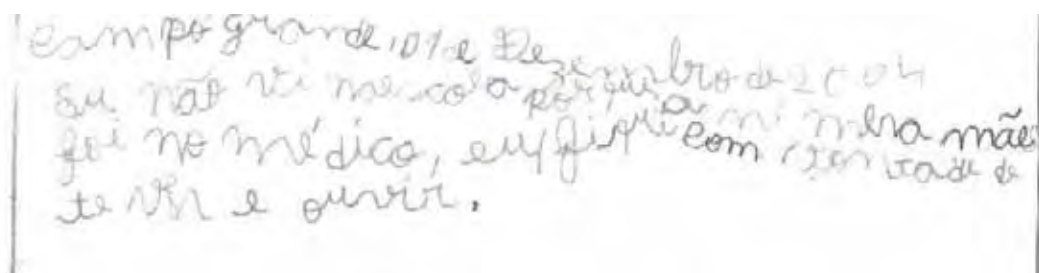 Campo grande, 01 e Dezembro de 2004
Eu não vi nescola porque a mi mha mãe
foi no médico, eu fiqui com vontade de
te ver e ouvir.